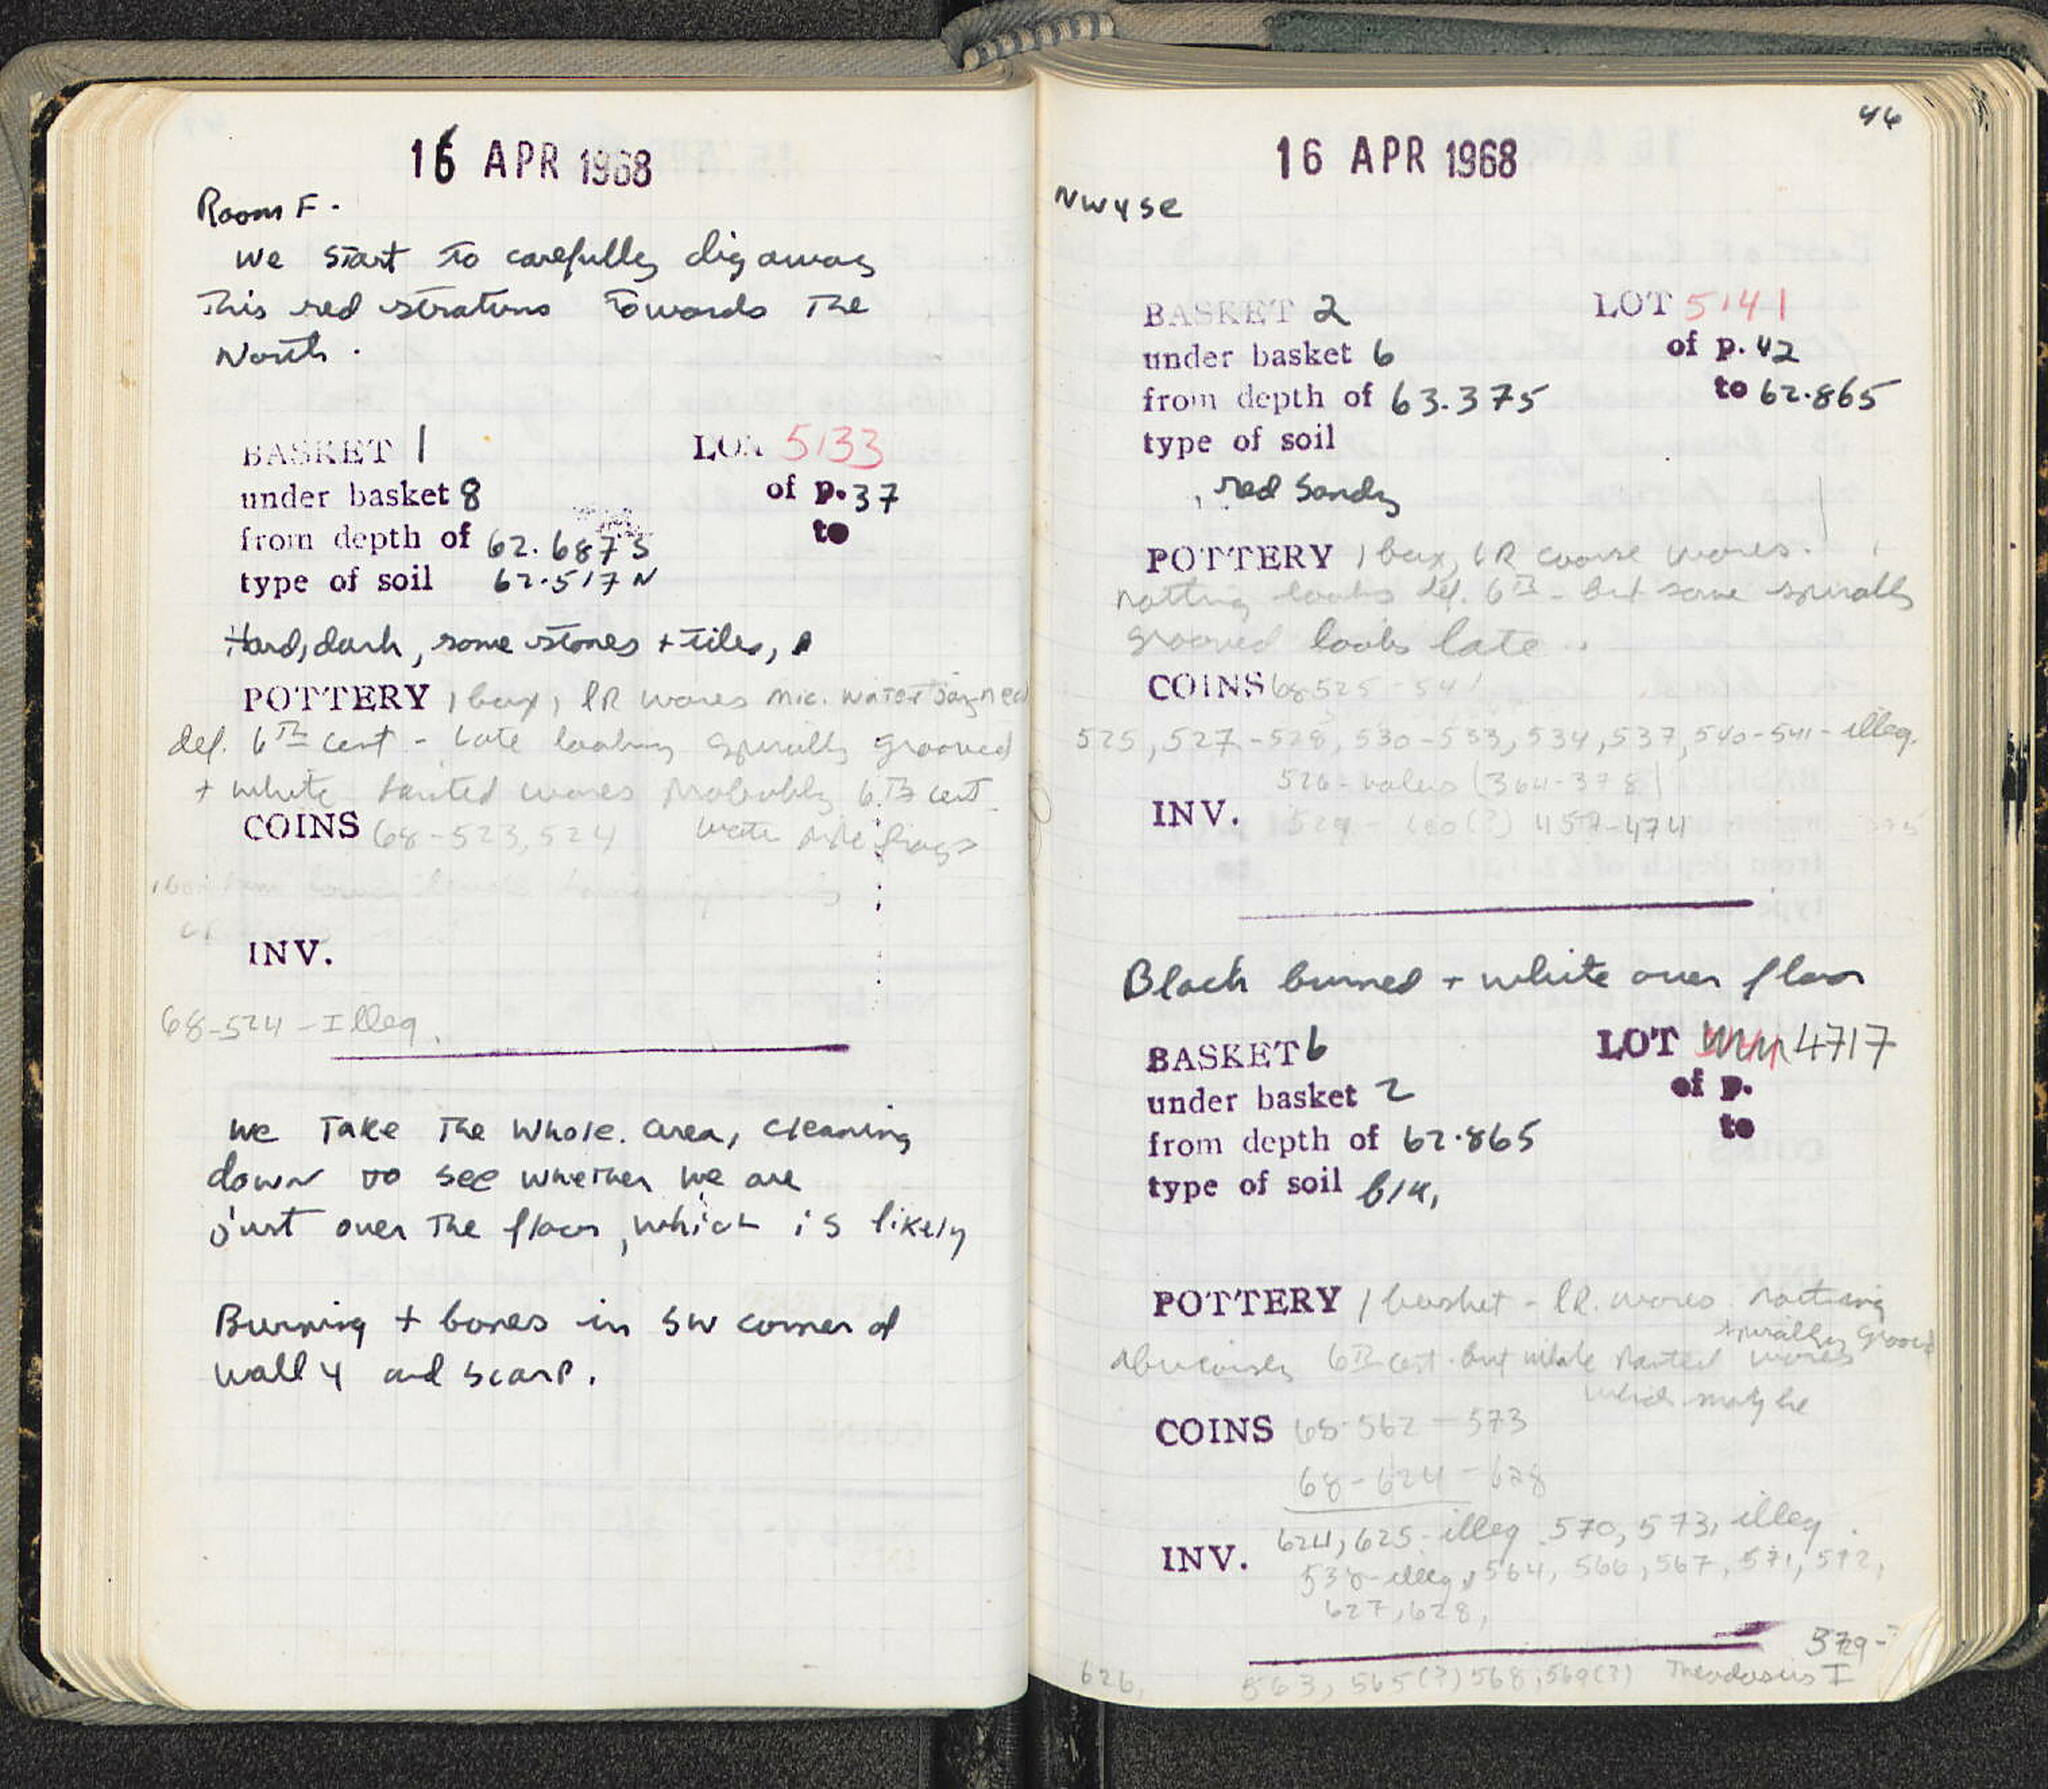 16 APR 1968
Room F.
We start to carefully dig away
this red stratum towards the
North.
BASKET 1 LOT 5133
under basket 8 of p. 37
from depth of 62.687 S to
type of soil 62.517 N
Hard, dark, some stones + tiles,
POTTERY 1 box, LR wares mic. water jag-ned
def. 6th cent - late looking spirally grooved
+ white painted wares probably 6th cent
COINS 68-523, 524 water pipe frags
INV.
68-524 - Illeg.
We take the whole area, cleaning
down to see whether we are
just over the floor, which is likely
Burning + bones in SW corner of
Wall 4 and scarp.
46
16 APR 1968
NW4SE
BASKET 2 LOT 5141
under basket 6 of p. 42
from depth of 63.375 to 62.865
type of soil
red sandy
POTTERY 1 box, LR coarse wares.
nothing looks def. 6th - but some spirally
grooved looks late.
COINS 68 525-541
525, 527-528, 530-533, 534, 537, 540-541 - illeg.
526 - Valens (364-378)
INV. 529 - (?) 457-474
Black burned + white over floor
BASKET 6 LOT 4717
under basket 2 of p.
from depth of 62.865 to
type of soil blk,
POTTERY 1 basket - LR. wares nothing
spirally grooved
obviously 6th cent. but white painted wares
which may be
COINS 68-562 - 573
68-624 - 628
624, 625 - illeg. 570, 573, illeg.
INV. illeg, 564, 566, 567, 571, 572,
627, 628,
626, 563, 565(?) 568, 569(?) Theodosius I